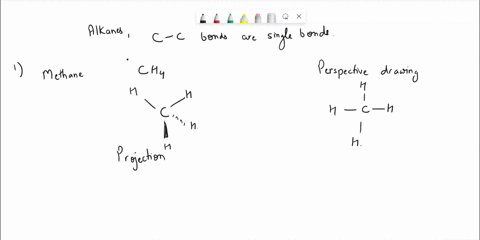 Alkanes, C-C bonds are single bonds.
1) Methane CH4
Perspective drawing
H
H
C
H
H
Projection
H
H - C - H
H.